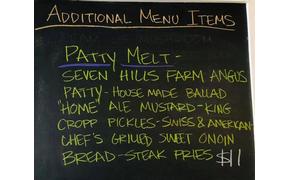 ADDITIONAL MENU ITEMS
PATTY MELT-
SEVEN HILLS FARM ANGUS
PATTY-HOUSE MADE BALLAD
"HOME" ALE MUSTARD-KING
CROPP PICKLES-SWISS & AMERICAN-
CHEF'S GRILLED SWEET ONOIN
BREAD-STEAK FRIES $11